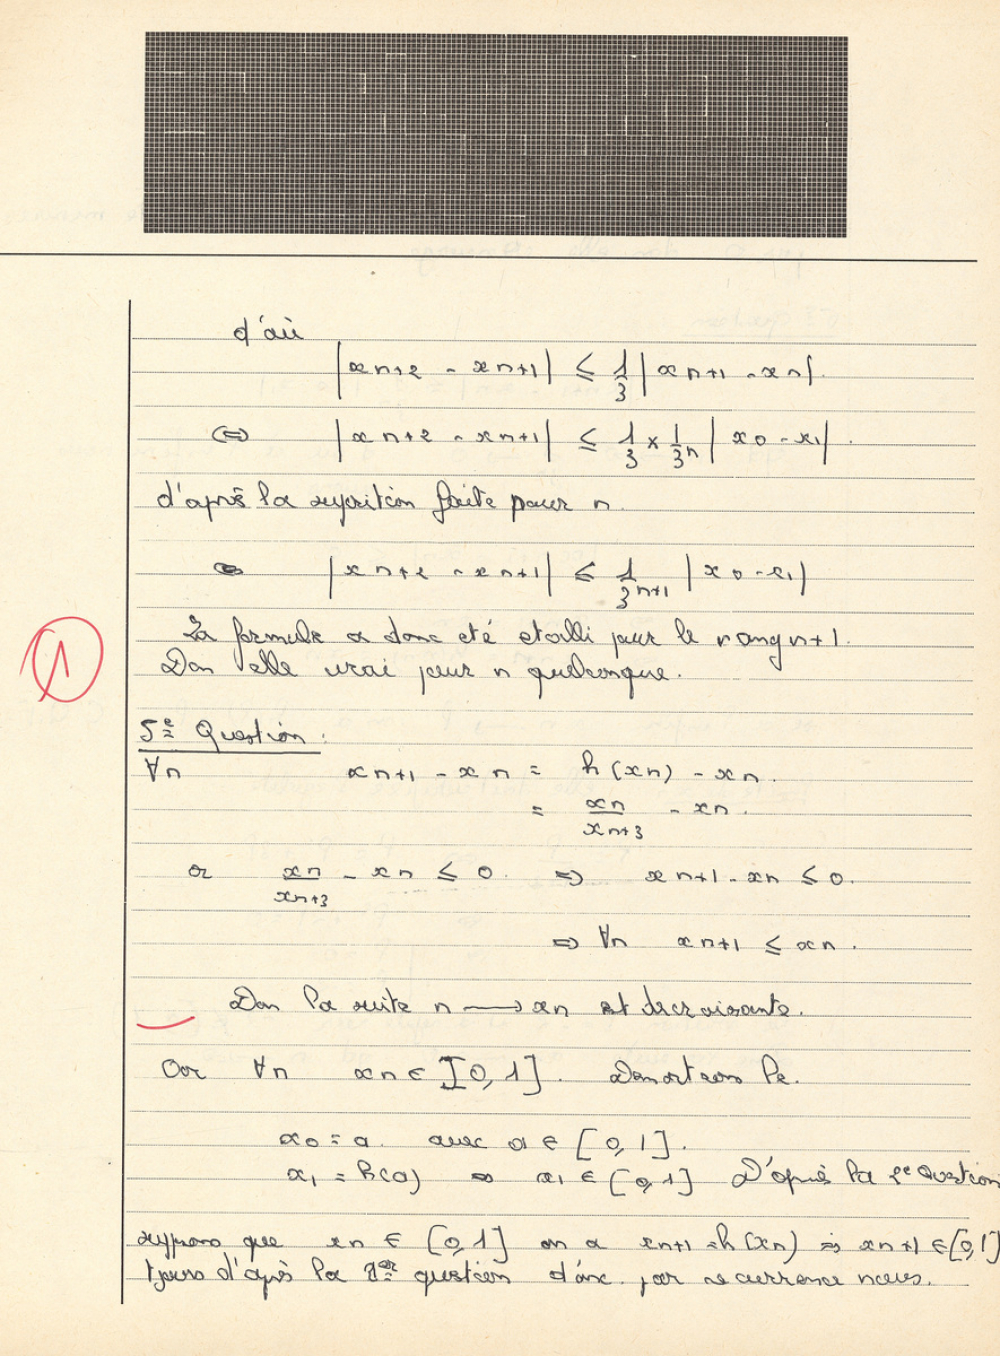 d'où
|xn+2 - xn+1| ≤ 1/3 |xn+1 - xn|.
⇔ |xn+2 - xn+1| ≤ 1/3 × 1/3^n |x0 - x1|.
d'après la supposition faite pour n.
⇔ |xn+2 - xn+1| ≤ 1/3^n+1 |x0 - x1|
La formule a donc été établi pour le rang n+1.
Don elle vrai pour n quelconque.
1
5e Question :
∀n xn+1 - xn = h(xn) - xn.
= xn/xn+3 - xn.
or xn/xn+3 - xn ≤ 0. ⇒ xn+1 - xn ≤ 0.
⇒ ∀n xn+1 ≤ xn.
Don la suite n ⟶ xn est décroissante.
Or ∀n xn ∈ [0,1]. Démontrons le.
x0 = a. avec a ∈ [0,1].
x1 = h(a) ⇒ x1 ∈ [0,1] D'après la Question
supposons que xn ∈ [0,1] on a xn+1 = h(xn) ⇒ xn+1 ∈ [0,1]
d'après la question donc par recurrence nous.